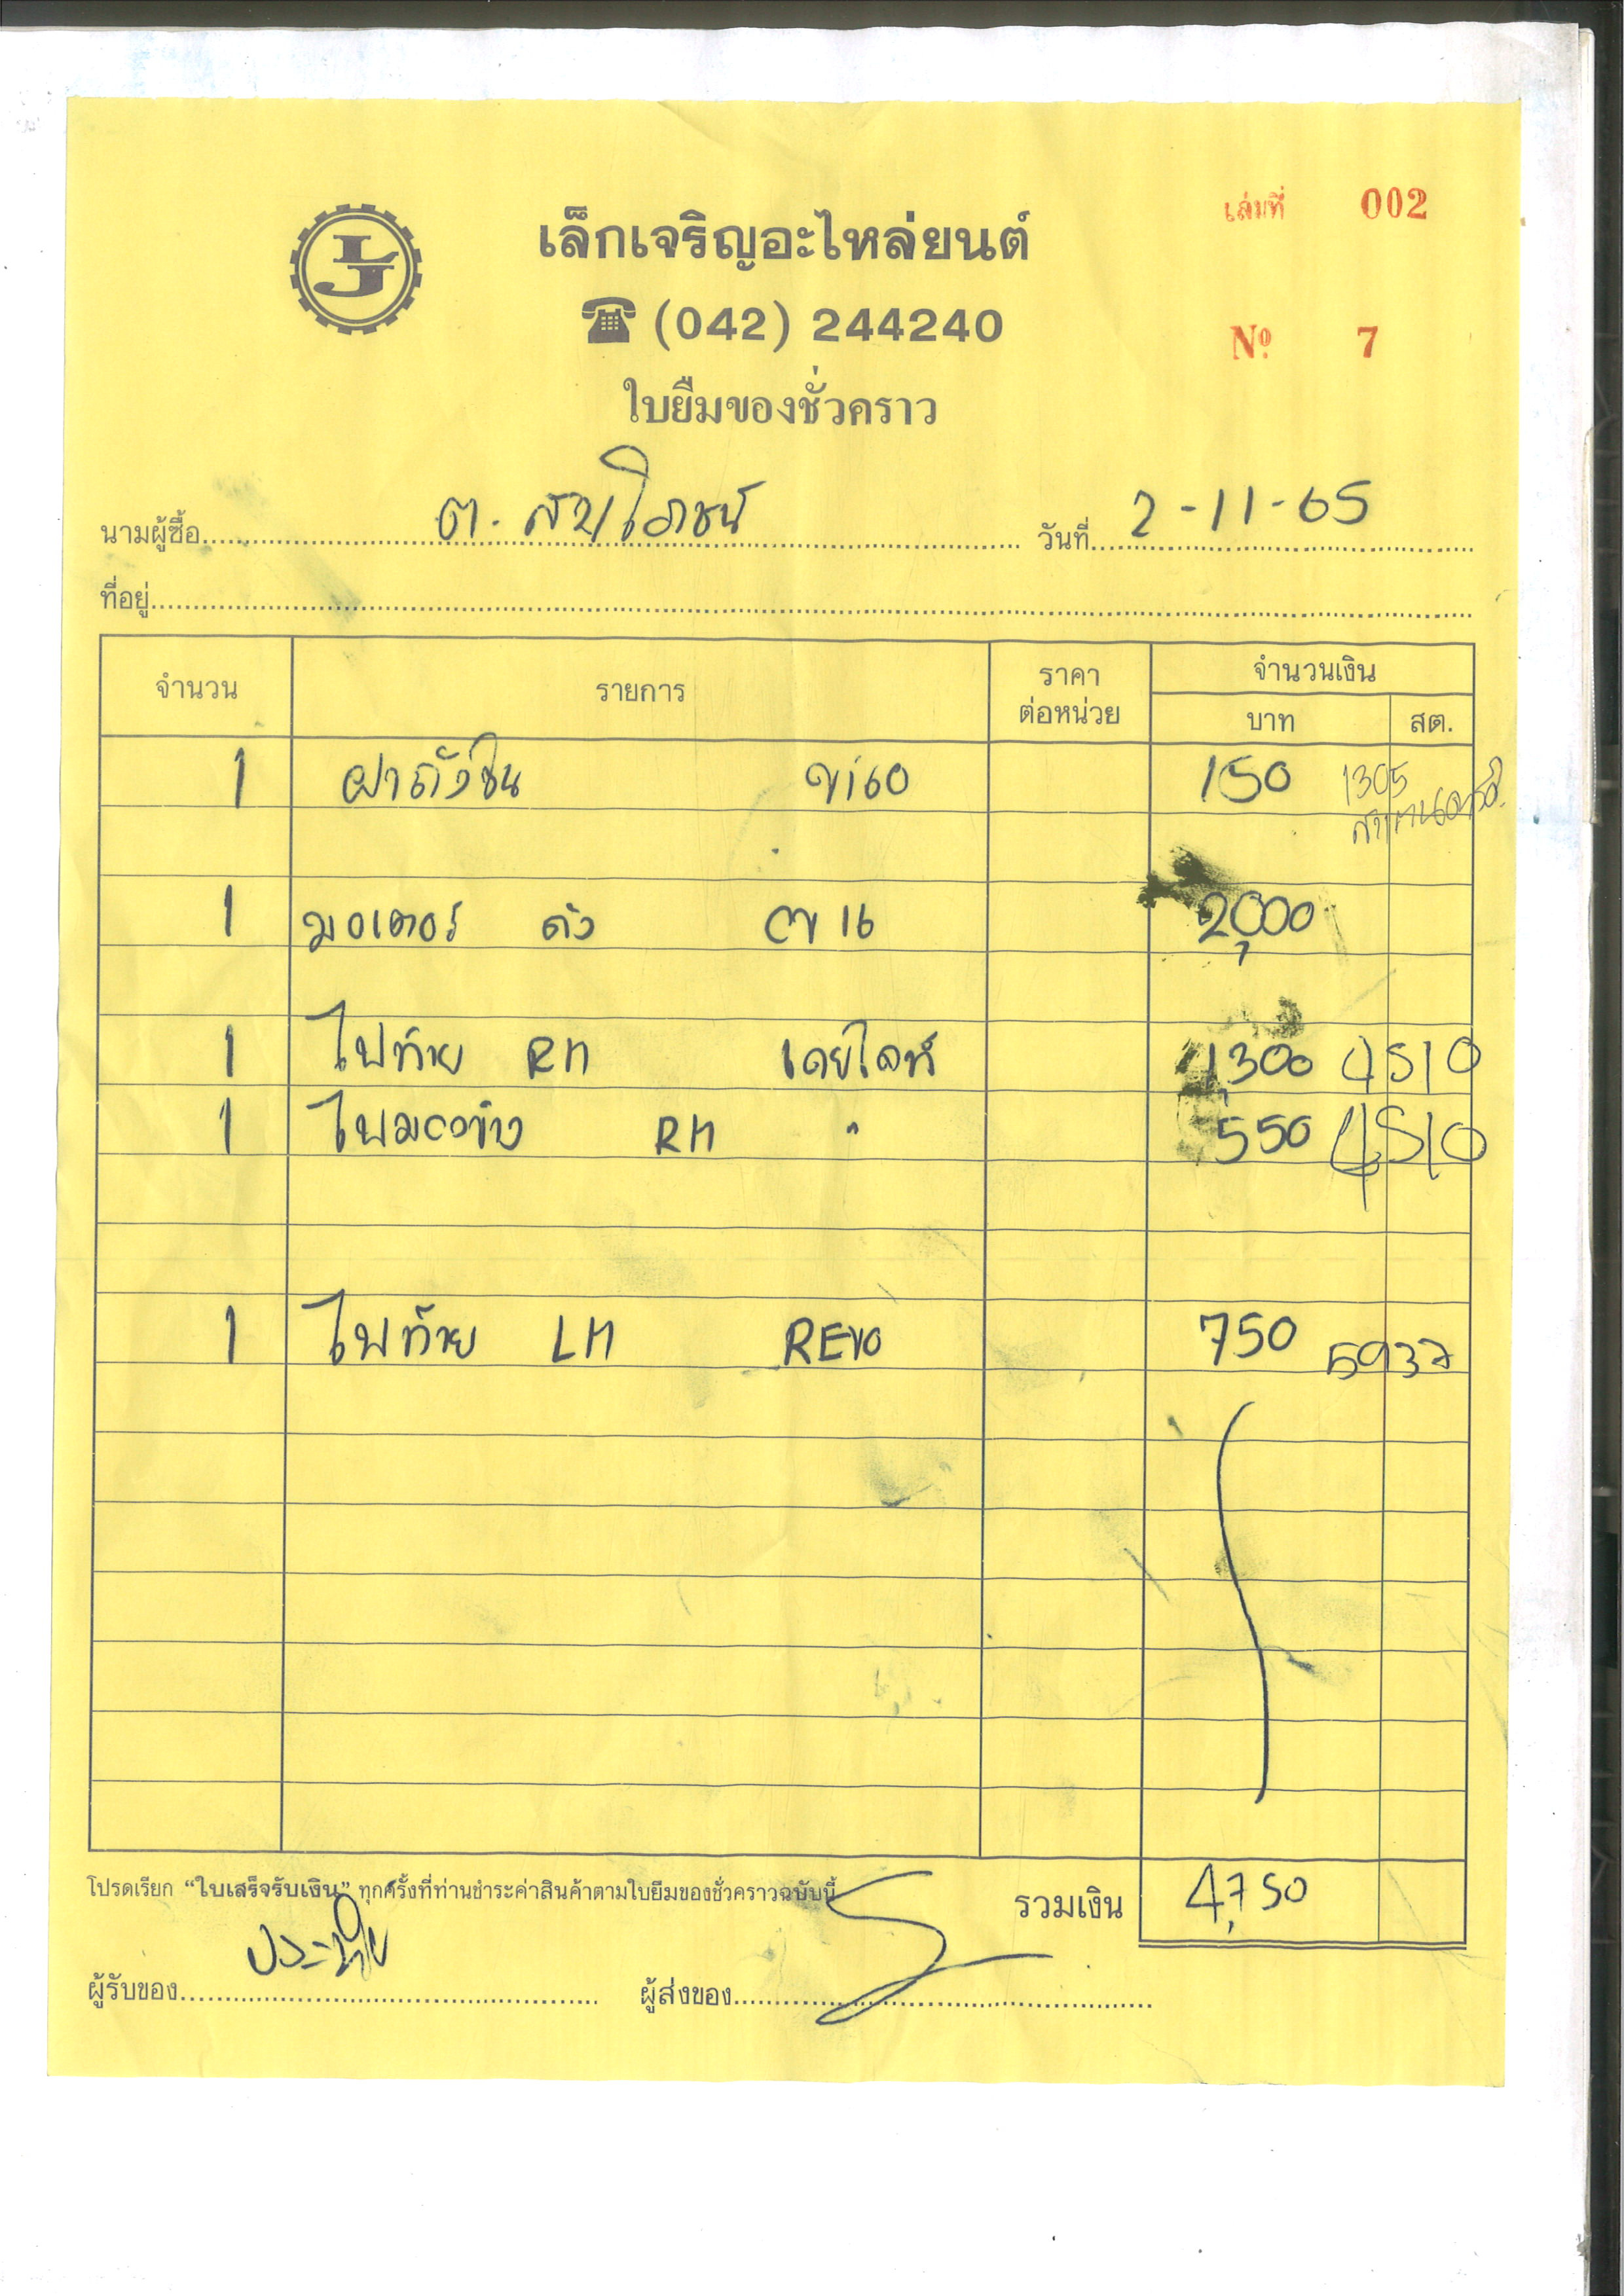 เล่มที่ 002
LJ
เล็กเจริญอะไหล่ยนต์
(042) 244240
Nº 7
ใบยืมของชั่วคราว
นามผู้ซื้อ ต. สหโภชน์ วันที่ 2-11-65
ที่อยู่
จำนวน รายการ ราคาต่อหน่วย จำนวนเงิน
บาท สต.
1 ฝาถังซิน 150 1305
1 มอเตอร์ 2,000
1 ไฟท้าย RH เดย์ไลท์ 1300 4510
1 ไฟมองข้าง RH " 550 4510
1 ไฟท้าย LH REVO 750 5937
โปรดเรียก “ใบเสร็จรับเงิน” ทุกครั้งที่ท่านชำระค่าสินค้าตามใบยืมของชั่วคราวฉบับนี้
รวมเงิน 4,750
ผู้รับของ ผู้ส่งของ